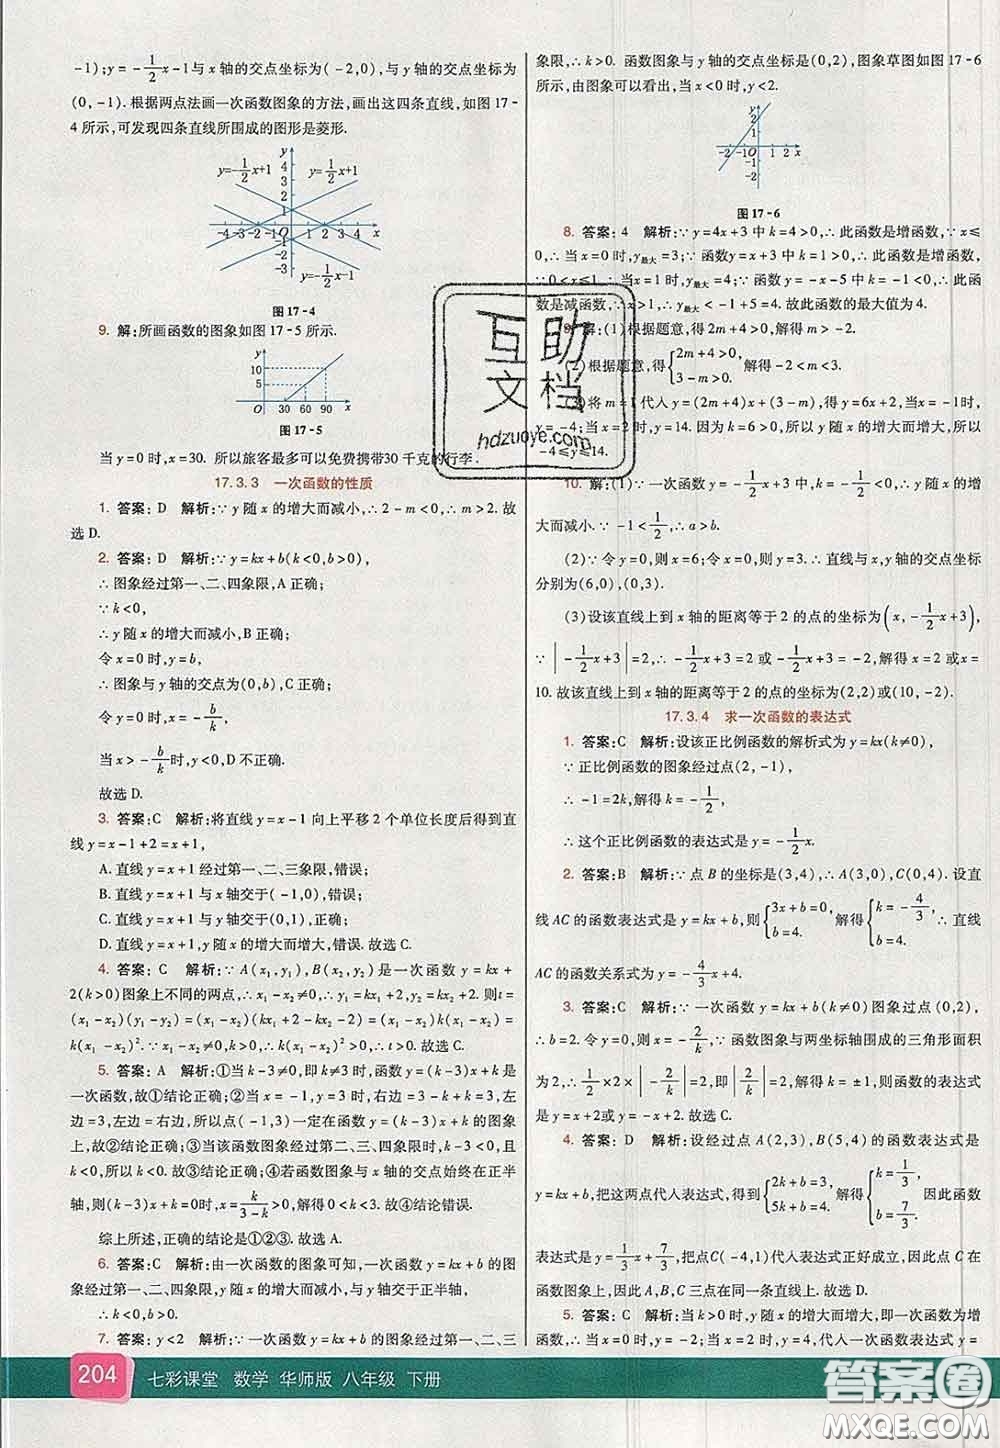 -1);y=-1/2x-1与x轴的交点坐标为(-2,0),与y轴的交点坐标为
(0,-1).根据两点法画一次函数图象的方法,画出这四条直线,如图17-
4所示,可发现四条直线所围成的图形是菱形.
y=-1/2x+1 y y=1/2x+1
4
3
2
1
-4-3-2-1O 1 2 3 4 x
-1
-2
-3
y=-1/2x-1
图17-4
9. 解:所画函数的图象如图17-5所示.
y
10
5
O 30 60 90 x
图17-5
当y=0时,x=30. 所以旅客最多可以免费携带30千克的行李.
17.3.3 一次函数的性质
1. 答案: D 解析:∵y随x的增大而减小,∴2-m<0,∴m>2.故
选D.
2. 答案: D 解析:∵y=kx+b(k<0,b>0),
∴图象经过第一、二、四象限,A正确;
∵k<0,
∴y随x的增大而减小,B正确;
令x=0时,y=b,
∴图象与y轴的交点为(0,b),C正确;
令y=0时,x=-b/k,
当x>-b/k时,y<0,D不正确.
故选D.
3. 答案:C 解析:将直线y=x-1向上平移2个单位长度后得到直
线y=x-1+2=x+1,
A.直线y=x+1经过第一、二、三象限,错误;
B.直线y=x+1与x轴交于(-1,0),错误;
C.直线y=x+1与y轴交于(0,1),正确;
D.直线y=x+1,y随x的增大而增大,错误.故选C.
4. 答案: C 解析:∵A(x₁,y₁),B(x₂,y₂)是一次函数y=kx+
2(k>0)图象上不同的两点,∴x₁-x₂≠0,y₁=kx₁+2,y₂=kx₂+2.则t=
(x₁-x₂)(y₁-y₂)=(x₁-x₂)(kx₁+2-kx₂-2)=(x₁-x₂)k(x₁-x₂)=
k(x₁-x₂)².∵x₁-x₂≠0,k>0,∴k(x₁-x₂)²>0,∴t>0.故选C.
5. 答案: A 解析:①当k-3≠0,即k≠3时,函数y=(k-3)x+k是
一次函数,故①结论正确;②当x=-1,y=3时,右边=3-k+k=3,左边=
3,左边=右边,所以点(-1,3)一定在函数y=(k-3)x+k的图象
上,故②结论正确;③当该函数图象经过第二、三、四象限时,k-3<0,且
k<0,所以k<0.故③结论正确;④若函数图象与x轴的交点始终在正半
轴,则(k-3)x+k=0,x=k/(3-k)>0,解得0<k<3. 故④结论错误.
综上所述,正确的结论是①②③.故选A.
6. 答案:C 解析:由一次函数的图象可知,一次函数y=kx+b的图
象经过第一、二、四象限,y随x的增大而减小,与y轴交于正半轴,
∴k<0,b>0.
7. 答案: y<2 解析:∵一次函数y=kx+b的图象经过第一、二、三
象限,∴k>0. 函数图象与y轴的交点坐标是(0,2),图象草图如图17-6
所示,由图象可以看出,当x<0时,y<2.
y
2
1
-2-1O 1 2 x
-1
-2
图17-6
8. 答案: 4 解析:∵y=4x+3中k=4>0,∴此函数是增函数,∵x≤
0,∴当x=0时,y最大=3;∵函数y=x+3中k=1>0,∴此函数是增函数,
∵0<x≤1,∴当x=1时,y最大=4;∵函数y=-x+5中k=-1<0,∴此函
数是减函数,∵x>1,∴y最大<4.故此函数的最大值为4.
9. 解:(1)根据题意,得2m+4>0,解得m>-2.
(2)根据题意,得{2m+4>0, 3-m>0. 解得-2<m<3.
(3)将m=1代入y=(2m+4)x+(3-m),得y=6x+2,当x=-1时,
y=-4;当x=2时,y=14. 因为k=6>0,所以y随x的增大而增大.所以
-4≤y≤14.
10. 解:(1)∵一次函数y=-1/2x+3中,k=-1/2<0,∴y随x的增
大而减小.∵-1<1/2,∴a>b.
(2)∵令y=0,则x=6;令x=0,则y=3.∴直线与x,y轴的交点坐标
分别为(6,0),(0,3).
(3)设该直线上到x轴的距离等于2的点的坐标为(x,-1/2x+3),
∵|-1/2x+3|=2,∴-1/2x+3=2或-1/2x+3=-2,解得x=2或x=
10.故该直线上到x轴的距离等于2的点的坐标为(2,2)或(10,-2).
17.3.4 求一次函数的表达式
1. 答案:C 解析:设该正比例函数的解析式为y=kx(k≠0),
∵正比例函数的图象经过点(2,-1),
∴-1=2k,解得k=-1/2,
∴这个正比例函数的表达式是y=-1/2x.
2. 答案:B 解析:∵点B的坐标是(3,4),∴A(3,0),C(0,4).设直
线AC的函数表达式是y=kx+b,则{3x+b=0, b=4. 解得{k=-4/3, b=4. ∴直线
AC的函数关系式为y=-4/3x+4.
3. 答案:C 解析:∵一次函数y=kx+b(k≠0)图象过点(0,2),
∴b=2.令y=0,则x=-2/k.∵函数图象与两坐标轴围成的三角形面积
为2,∴1/2×2×|-2/k|=2,即|2/k|=2,解得k=±1,则函数的表达式
是y=x+2或y=-x+2.故选C.
4. 答案: D 解析:设经过点A(2,3),B(5,4)的函数表达式是
y=kx+b,把这两点代入表达式,得到{2k+b=3, 5k+b=4. 解得{k=1/3, b=7/3. 因此函数
表达式是y=1/3x+7/3,把点C(-4,1)代入表达式正好成立,因此点C在
函数图象上,因此A,B,C三点在同一条直线上.故选D.
5. 答案: C 解析:∵y随x的增大而增大,即一次函数为增
函数,∴当x=-2时,y=-5,当x=6时,y=-2,代入一次函数表达式y=
204 七彩课堂 数学 华师版 八年级 下册
互助
文档
hdzuoye.com
答案圈
MXQE.COM